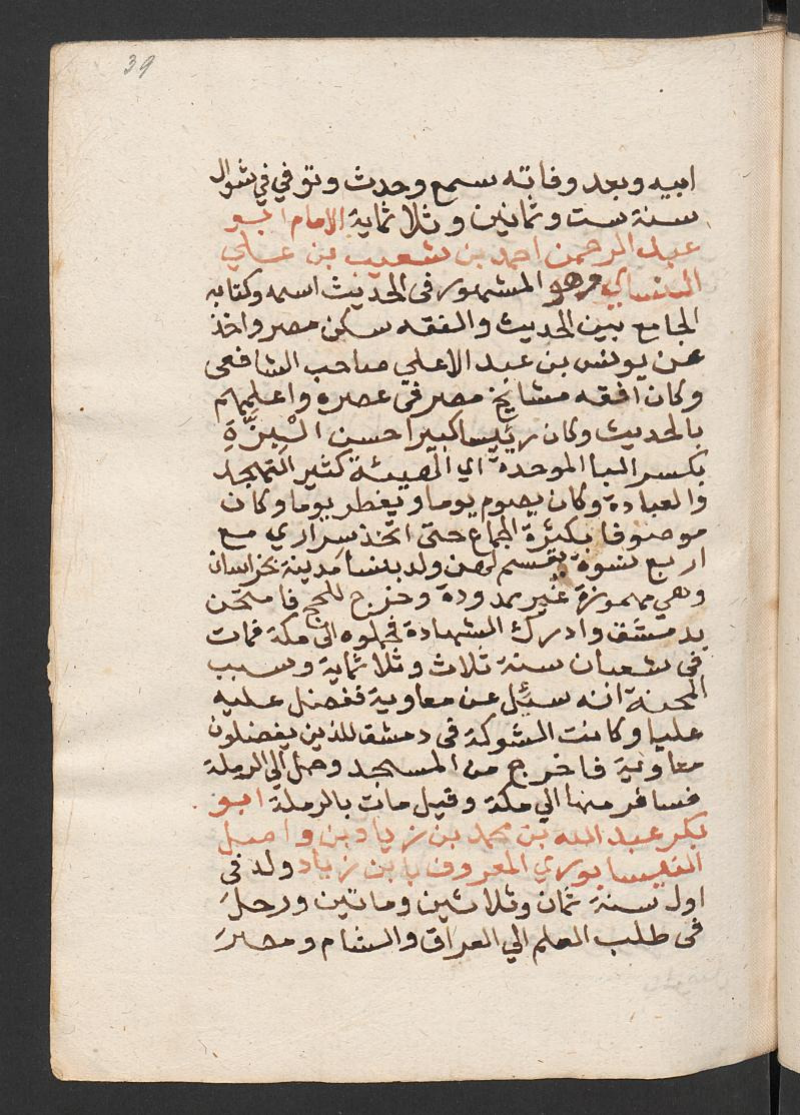 39
ابيه وبعد وفاته سمع وحدث وتوفي في شوال
سنة ست وثمانين وثلاثماية الامام ابو
عبد الرحمن احمد بن شعيب بن علي
النساي هو المشهور في الحديث اسمه وكتابه
الجامع بين الحديث والفقه سكن مصر واخذ
عن يونس بن عبد الاعلي صاحب الشافعي
وكان افقه مشايخ مصر في عصره واعلمهم
بالحديث وكان رئيسا كبيرا حسن البِزَّةِ
بكسر البا الموحدة اي الهيئة كثير التهجد
والعبادة وكان يصوم يوما ويفطر يوما وكان
موصوفا بكثرة الجماع حتى اتخذ سراري مع
اربع نسوة يقسم لهن ولد بنسا مدينة بخراسان
وهي مهموزة غير ممدودة وخرج للحج فامتحن
بدمشق وادرك الشهادة فحملوه الى مكة فمات
في شعبان سنة ثلاث وثلاثماية وسبب
المحنة انه سئل عن معاوية ففضل عليه
عليا وكانت الشوكة في دمشق للذين يفضلون
معاوية فاخرج من المسجد وحمل الي الرملة
فسافر منها الي مكة وقيل مات بالرملة ابو
بكر عبد الله بن محمد بن زياد بن واصل
النيسابوري المعروف بابن زياد ولد في
اول سنة ثمان وثلاثين وماتين ورحل
في طلب العلم الي العراق والشام ومصر